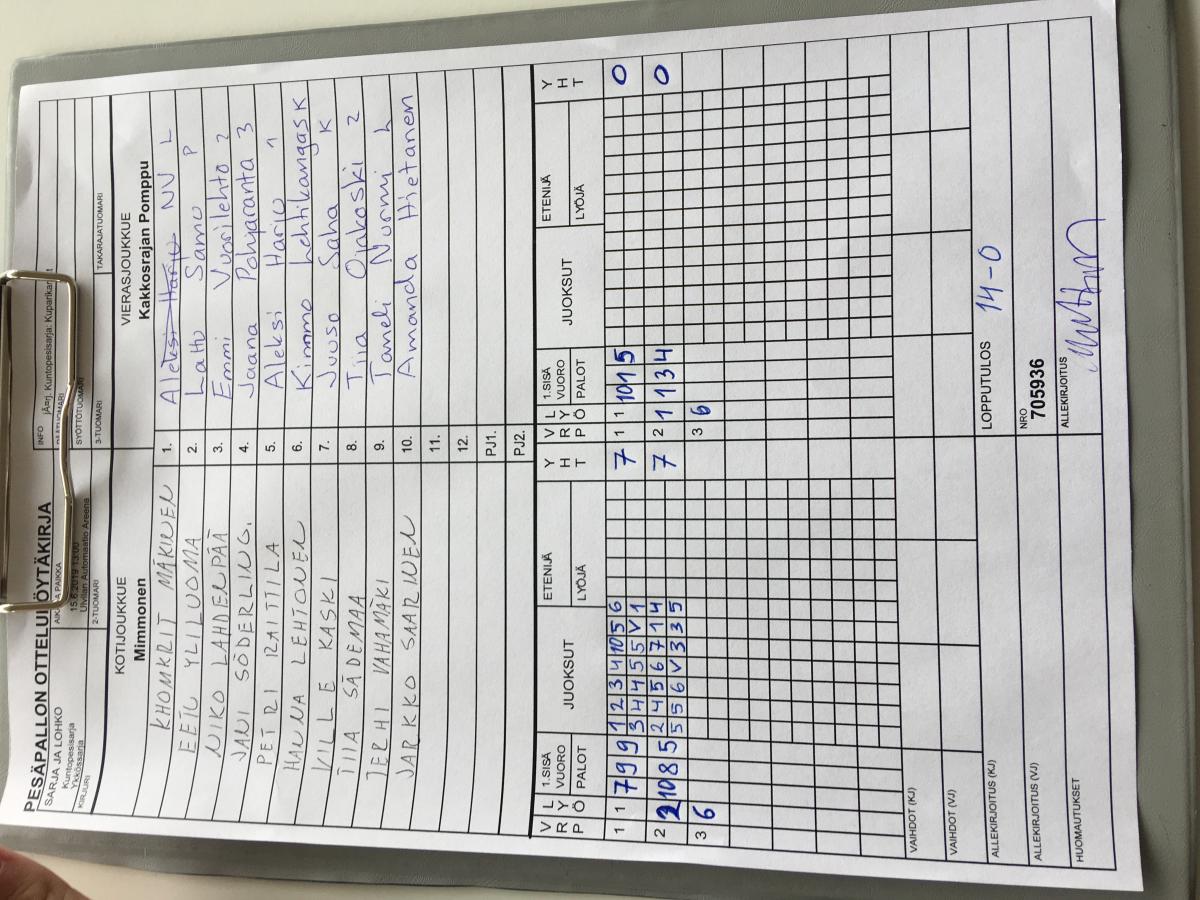 PESÄPALLON OTTELUPÖYTÄKIRJA
SARJA JA LOHKO
Kuntopesisarja
Ykkössarja
KIRJURI
AIKA JA PAIKKA
15.6.2019 13:00
Ulvilan Automaatio Areena
2-TUOMARI
INFO
SYÖTTÖTUOMARI
3-TUOMARI
TAKARAJATUOMARI
KOTIJOUKKUE
Mimmonen
VIERASJOUKKUE
Kakkosrajan Pomppu
KHOMKRIT MÄKINEN 1. Aleksi Harju NV L
EETU YLILUOMA 2. Latto Samu P
NIKO LAHDENPÄÄ 3. Emmi Vuorilehto 2
JANI SÖDERLING. 4. Jaana Pohjaranta 3
PETRI RAITTILA 5. Aleksi Harju 1
HANNA LEHTONEN 6. Kimmo Lehtikangas K
VILLE KASKI 7. Juuso Saha K
TIIA SÄDEMAA 8. Tiia Oinkoski 2
JERHI VAHAMÄKI 9. Taneli Nurmi L
JARKKO SAARINEN 10. Amanda Hietanen
11.
12.
PJ1.
PJ2.
VRP LYÖ 1.SISÄ VUORO PALOT JUOKSUT ETENIJÄ LYÖJÄ YHT VRP LYÖ 1.SISÄ VUORO PALOT JUOKSUT ETENIJÄ LYÖJÄ YHT
1 1 7 9 9 1 2 3 4 10 5 6 7 1 1 10 1 5 0
3 4 4 5 5 V 1
2 2 10 8 5 2 4 5 6 7 1 4 7 2 1 1 3 4 0
5 5 6 V 3 3 5
3 6 3 6
VAIHDOT (KJ)
VAIHDOT (VJ)
ALLEKIRJOITUS (KJ)
LOPPUTULOS 14-0
ALLEKIRJOITUS (VJ)
NRO
705936
HUOMAUTUKSET
ALLEKIRJOITUS